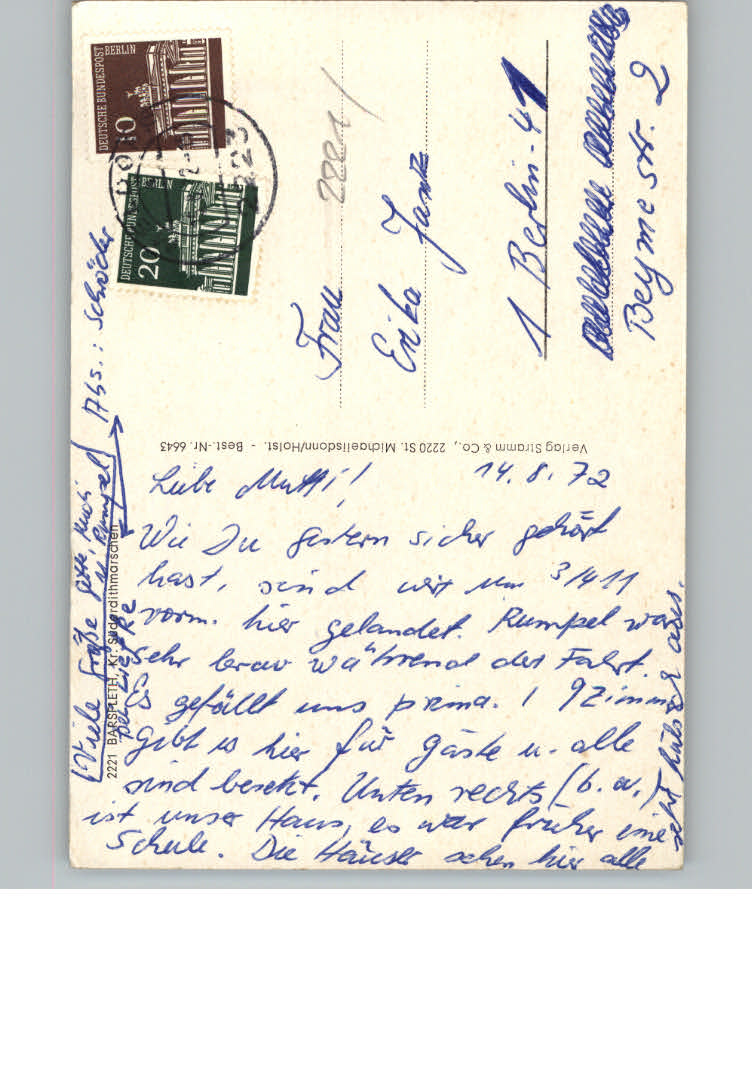 14.8.72
Liebe Mutti!
Wie Du gestern sicher gehört
hast, sind wir um 3/4 11
vorm. hier gelandet. Rumpel war
sehr brav während der Fahrt.
Es gefällt uns prima. 9 Zimmer
gibt es hier für Gäste u. alle
sind besetzt. Unten rechts (b. w.)
ist unser Haus, es war früher eine
Schule. Die Häuser sehen hier alle
sehr hübsch aus.
Viele Grüße
u. Rumpel
Abs.: Schröder
2221 BARSFLETH, Kr. Süderdithmarschen
Verlag Stramm & Co., 2220 St. Michaelisdonn/Holst. - Best.-Nr. 6643
DEUTSCHE BUNDESPOST BERLIN
10
DEUTSCHE BUNDESPOST BERLIN
20
2221
Frau
Erika
1 Berlin-41
Beymestr. 2